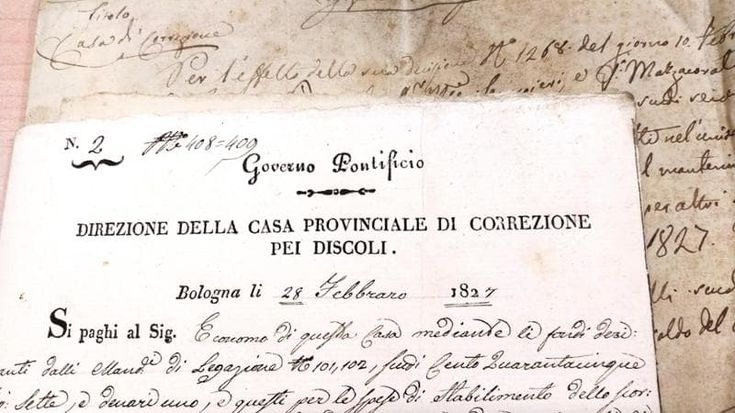 Titolo
Casa di Correzione
Per l'effetto della sua decisione N° 1268 del giorno 10. Febbr
N. 2 408=409
Governo Pontificio
DIREZIONE DELLA CASA PROVINCIALE DI CORREZIONE
PEI DISCOLI.
Bologna li 28 Febbraro 1827
Si paghi al Sig. Economo di questa Casa mediante li fondi deri-
vanti dalli Mand.ⁱ di Legazione N° 101,102, scudi Cento Quarantacinque
Sette, e denari uno, e questi per le spese di Stabilimento dello scor-
l mantenim
per altri
1827.